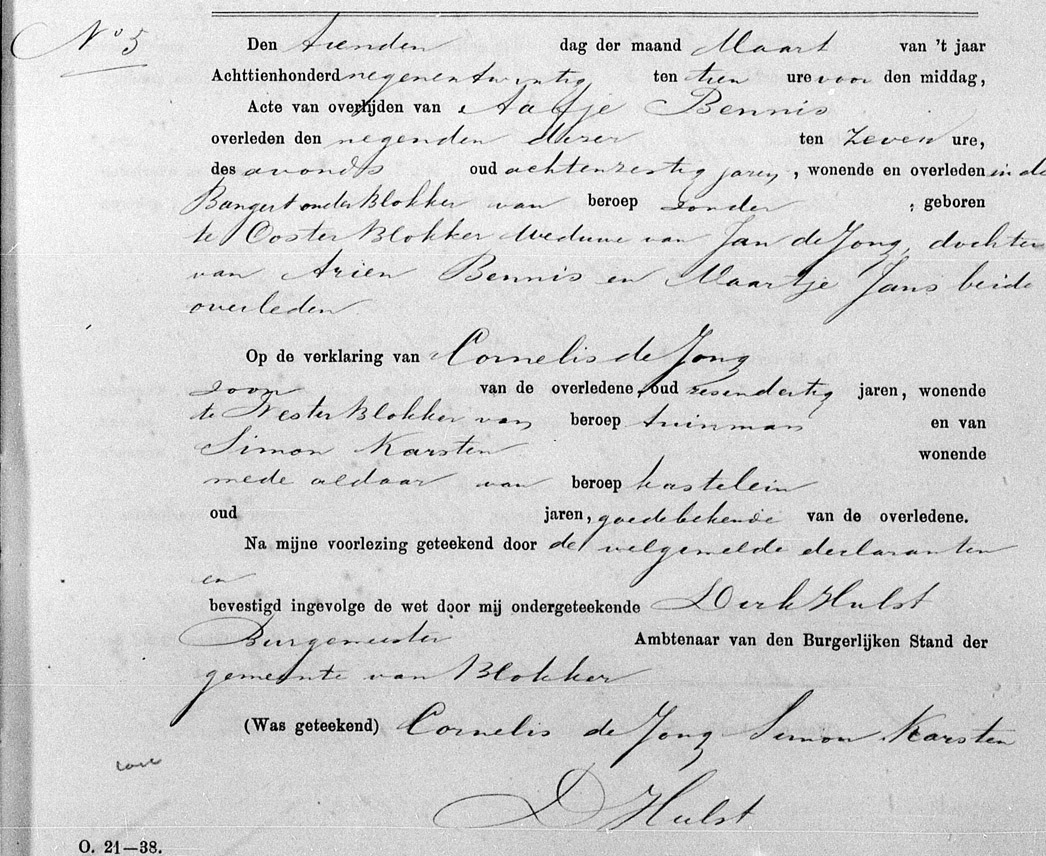 No 5
Den tienden dag der maand Maart van 't jaar
Achttienhonderd negenentwintig ten tien ure voor den middag,
Acte van overlijden van Aafje Bennis
overleden den negenden dezer ten zeven ure,
des avonds oud achtenzestig jaren, wonende en overleden in de
Bangert onder Blokker van beroep zonder ; geboren
te Ooster Blokker Weduwe van Jan de Jong, dochter
van Arien Bennis en Maartje Jans beide
overleden
Op de verklaring van Cornelis de Jong
zoon van de overledene, oud zesendertig jaren, wonende
te Wester Blokker van beroep tuinman en van
Simon Karsten wonende
mede aldaar van beroep kastelein
oud jaren, goede bekende van de overledene.
Na mijne voorlezing geteekend door de welgemelde declaranten
en
bevestigd ingevolge de wet door mij ondergeteekende Dirk Hulst
Burgemeester Ambtenaar van den Burgerlijken Stand der
gemeente van Blokker
(Was geteekend) Cornelis de Jong Simon Karsten
D Hulst
O. 21—38.